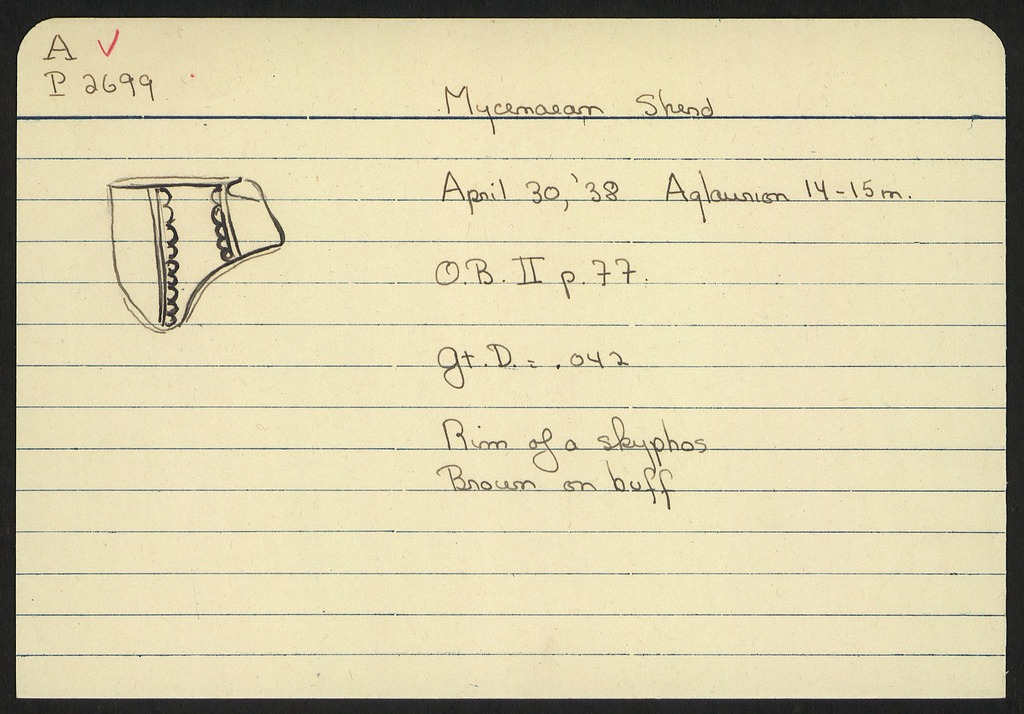 A ✓
P 2699
Mycenaean Sherd
April 30, '38 Aglaurion 14-15m.
O.B. II p. 77.
gt. D. = .042
Rim of a skyphos
Brown on buff